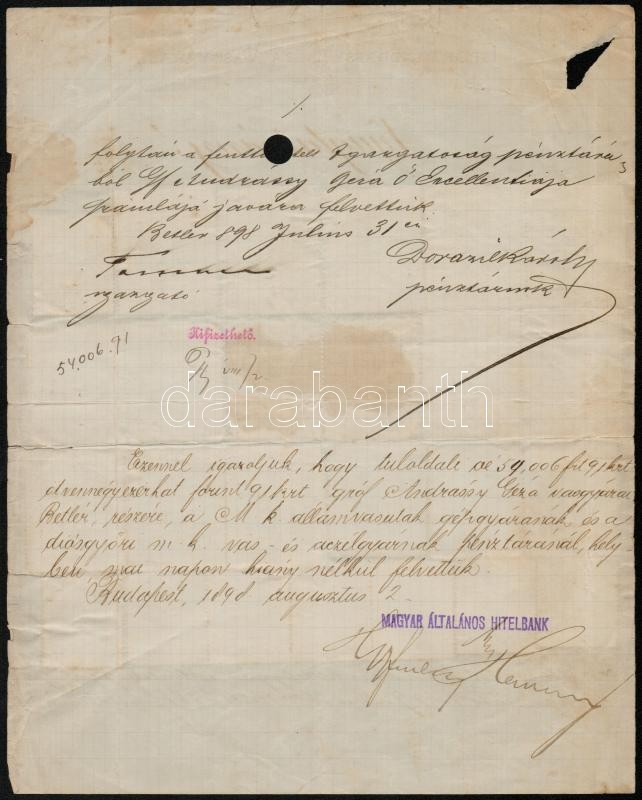 ./.
folytán a fentt tett Igazgatóság pénztárá
ból Gf Andrássy Géza Ő Excellentiája
számlája javára felvettük
Betlér 898 Július 31 én
Dorazil Károly
igazgató
pénztárnok
Kifizethető.
54,006.91
VIII/2
darabanth
Ezennel igazoljuk, hogy tuloldali 54,006 frt 91 krt
ötvennégyezerhat forint 91 krt gróf Andrássy Géza vasgyárai
Betlér, részére, a M k. államvasutak gépgyárának és a
diósgyőri m. k. vas- és aczélgyárnak pénztáránál, hely-
ben mai napon hiány nélkül felvettük.
Budapest, 1898 augusztus 2.
MAGYAR ÁLTALÁNOS HITELBANK